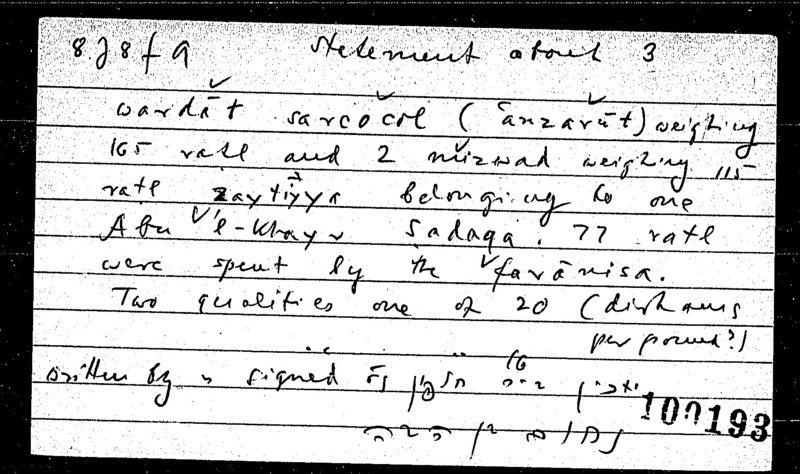 8 J 8 f 9 Statement about 3
wardāt sarcocol (ʾanzarūt) weighing
165 ratl and 2 mizwad weighing 115
ratl zaytiyya belonging to one
Abu 'l-Khayr Sadaqa. 77 ratl
were spent by the farānisa.
Two qualities one of 20 (dirhams
per pound?)
written by & signed
100193